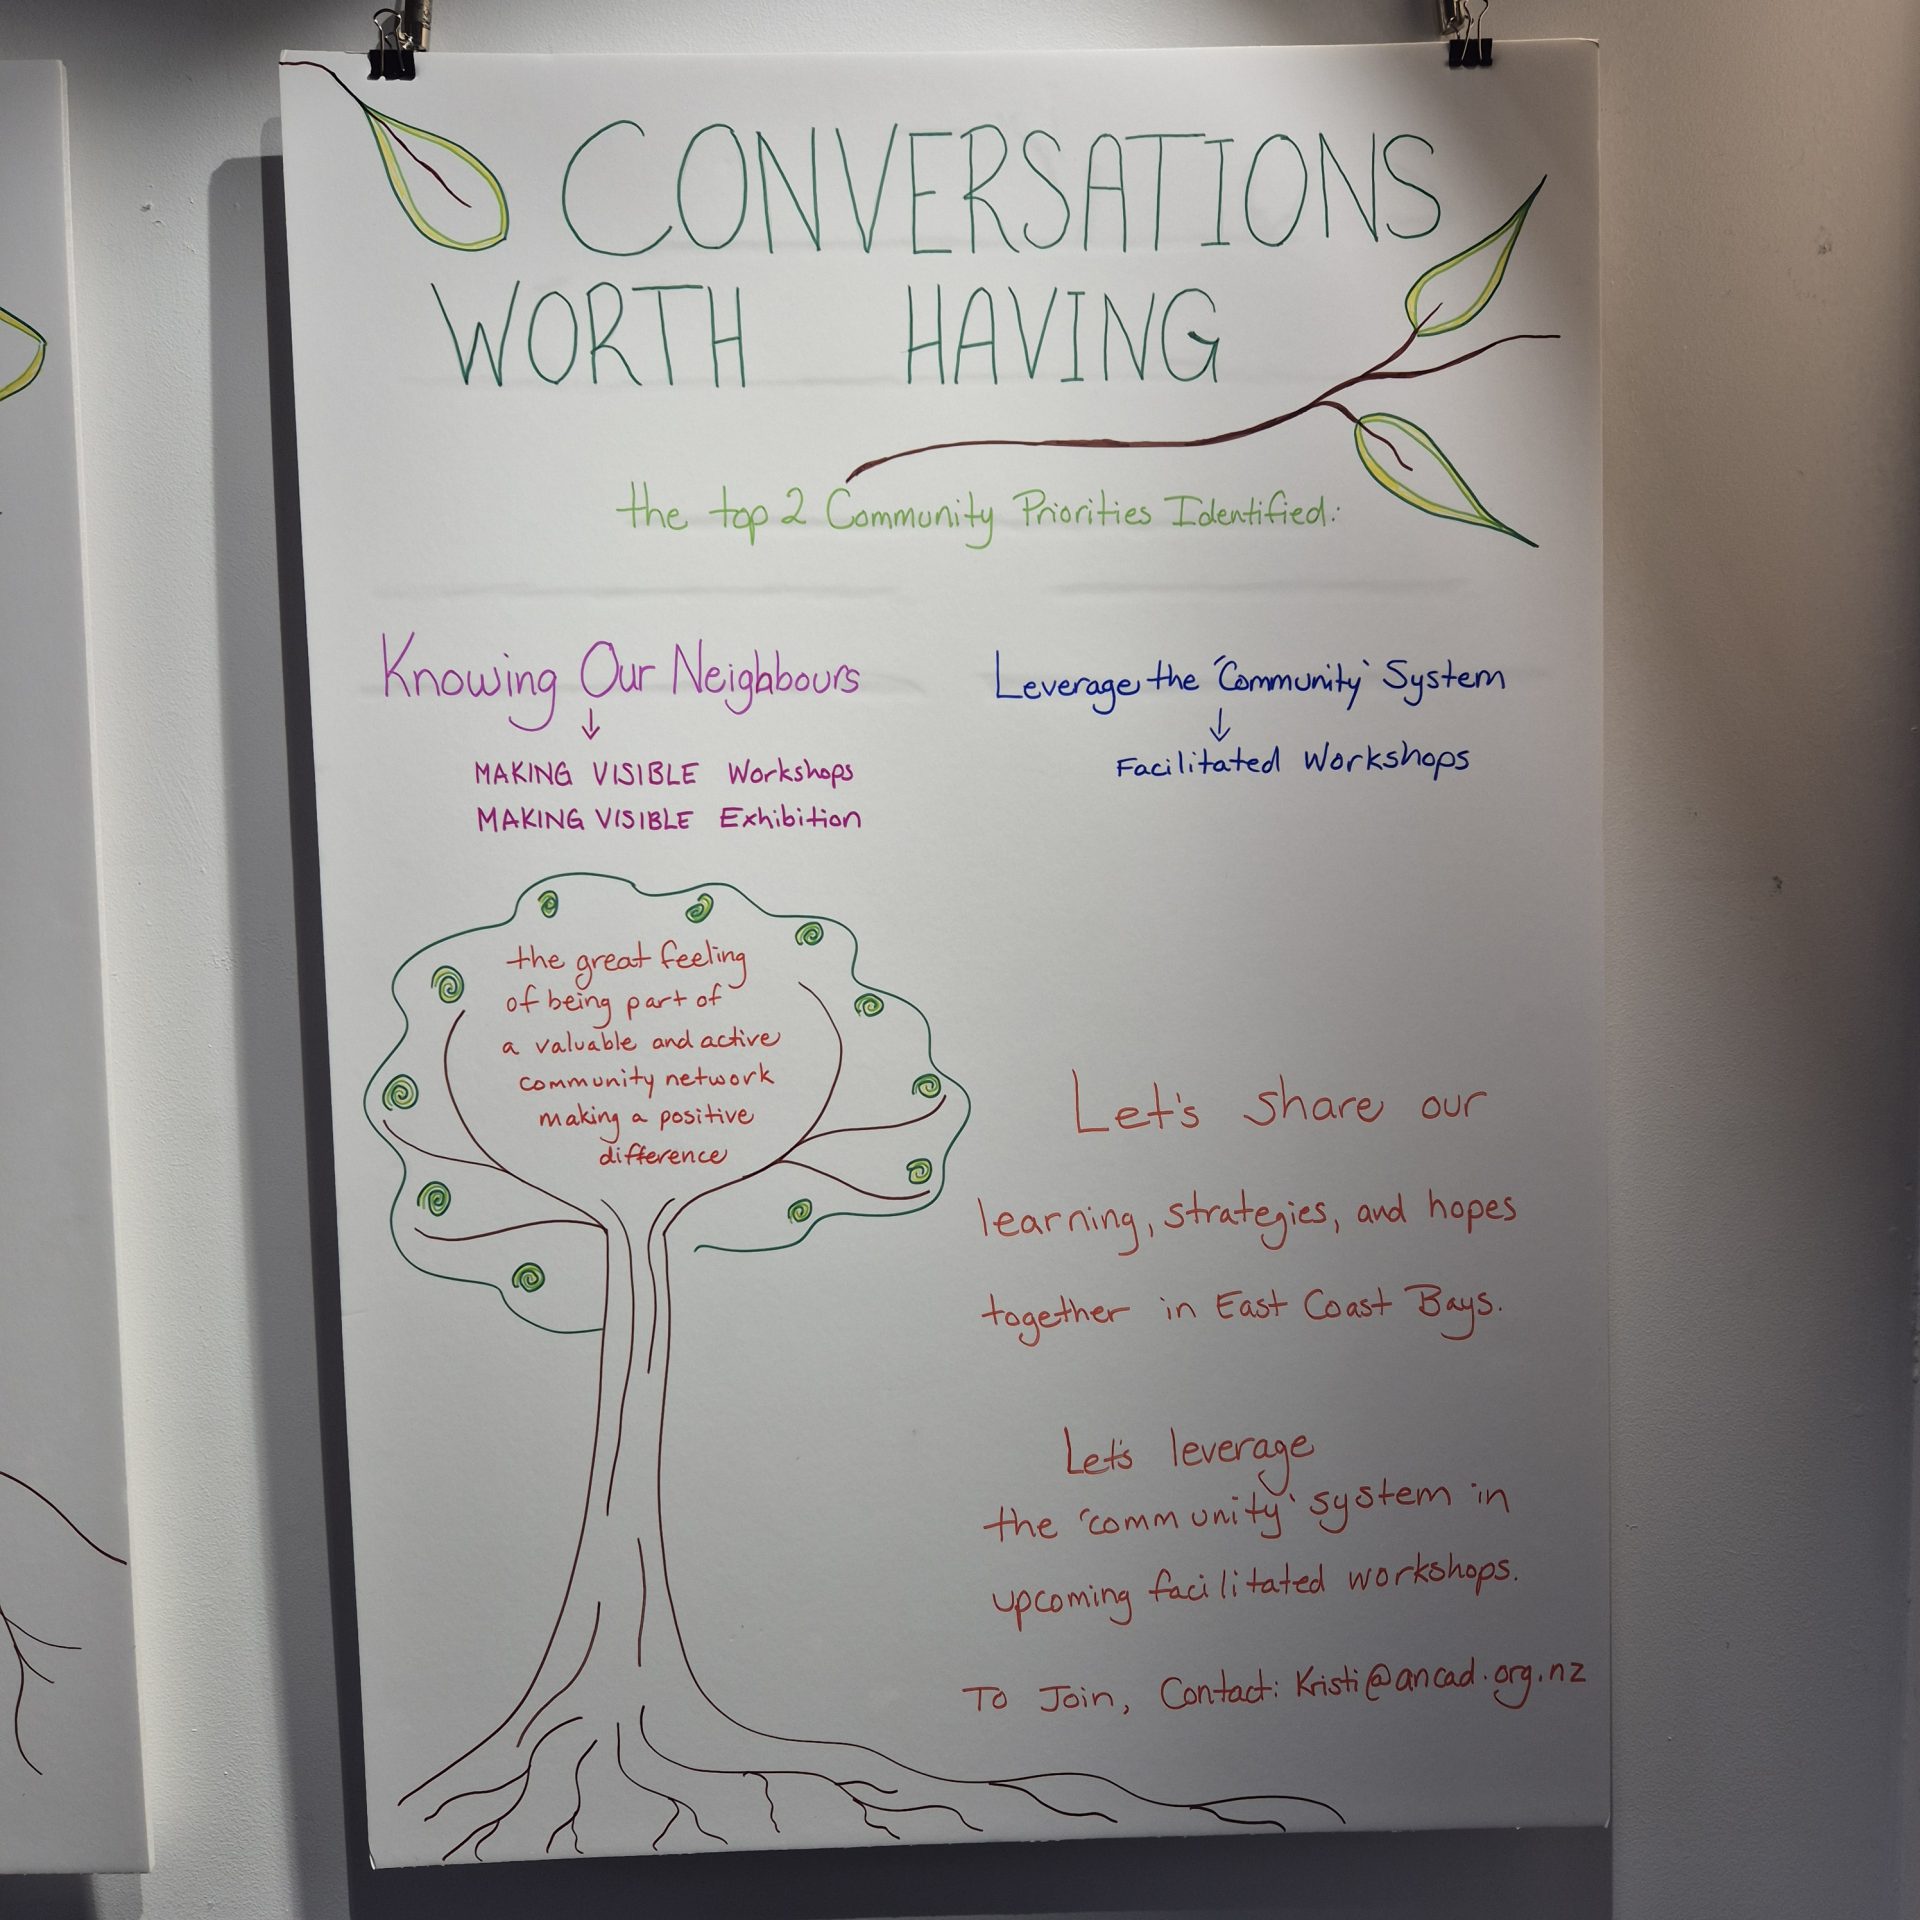 CONVERSATIONS
WORTH HAVING
the top 2 Community Priorities Identified:
Knowing Our Neighbours
MAKING VISIBLE Workshops
MAKING VISIBLE Exhibition
Leverage the 'Community' System
Facilitated Workshops
the great feeling
of being part of
a valuable and active
community network
making a positive
difference
Let's share our
learning, strategies, and hopes
together in East Coast Bays.
Let's leverage
the 'community' system in
upcoming facilitated workshops.
To Join, Contact: Kristi@ancad.org.nz